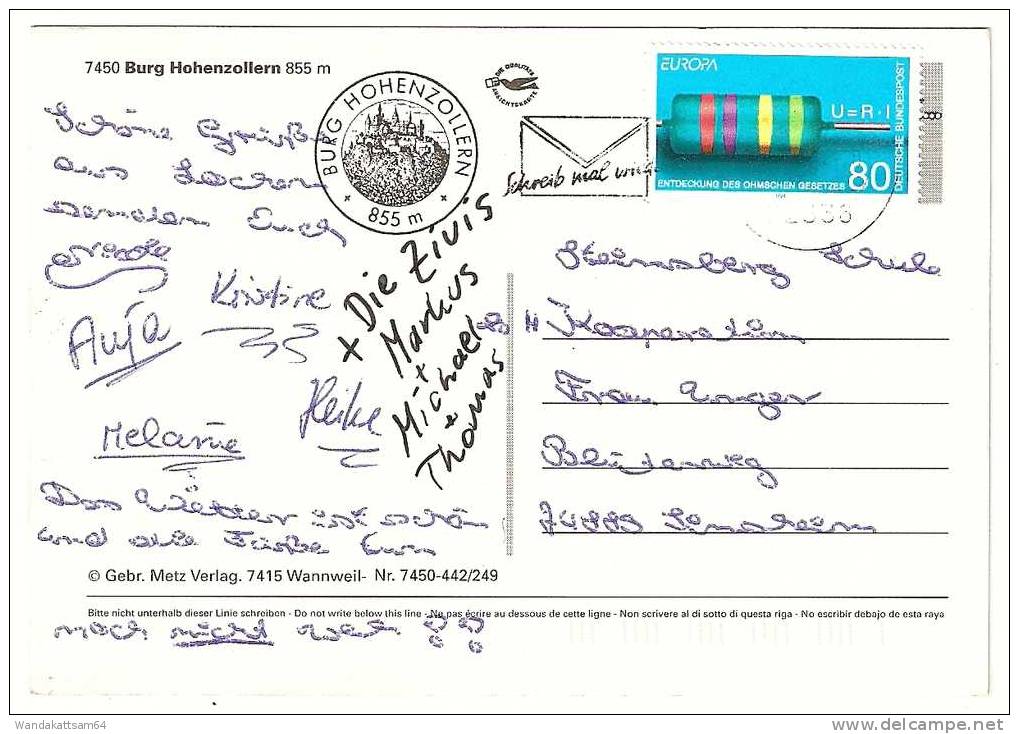 7450 Burg Hohenzollern 855 m
BURG HOHENZOLLERN
855 m
DIE QUALITÄTS ANSICHTSKARTE
Schreib mal
EUROPA
U=R·I
ENTDECKUNG DES OHMSCHEN GESETZES 80
DEUTSCHE BUNDESPOST
Schöne Grüße
aus
senden Euch
Nicole
Kristine
Anja
Heike
Melanie
+ Die Zivis
Markus
+
Michael
+
Thomas
Das Wetter ist schön
und die Füße tun
noch nicht weh !!
Steinsberg Schule
Kooperation
Frau Unger
74889 Sinsheim
© Gebr. Metz Verlag. 7415 Wannweil- Nr. 7450-442/249
Bitte nicht unterhalb dieser Linie schreiben - Do not write below this line - Ne pas écrire au dessous de cette ligne - Non scrivere al di sotto di questa riga - No escribir debajo de esta raya
Wandakattsam64
delcampe.net